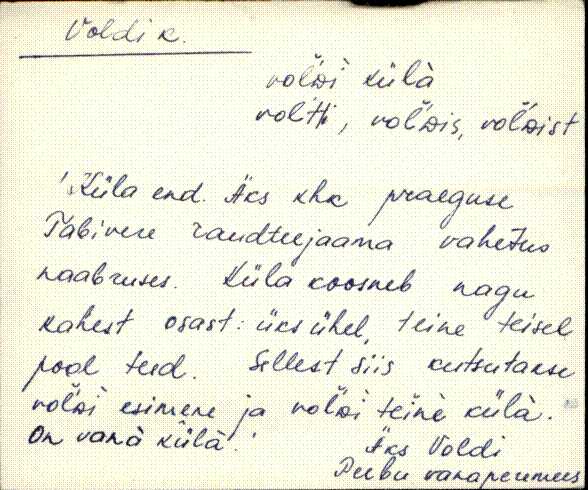 Voldi k.
vol̆ᴅì külà
vol̆tti, vol̆ᴅis, vol̆ᴅist
'Küla end. Äks khk praeguse
Tabivere raudteejaama vahetus
naabruses. Küla koosneb nagu
kahest osast: üks ühel, teine teisel
pool teed. Sellest siis kutsutakse
vol̆ᴅì esimene ja vol̆ᴅì teinè külà.
On vanà külà.'
Äks Voldi
Peebu vanaperemees